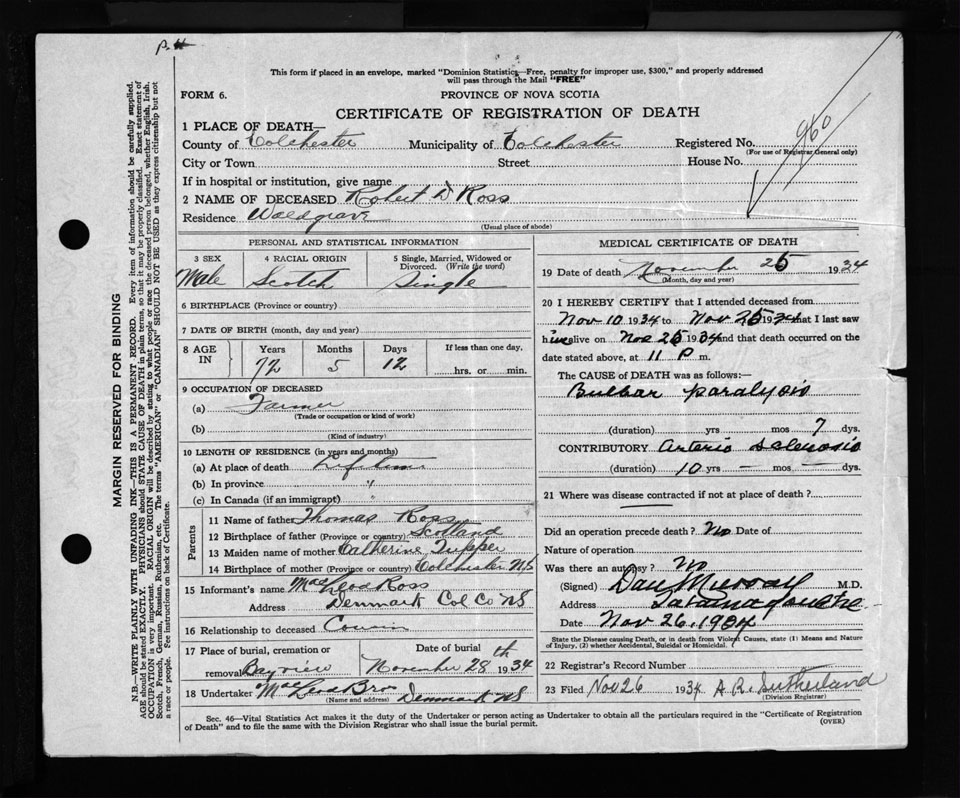 P. H
This form if placed in an envelope, marked "Dominion Statistics—Free, penalty for improper use, $300," and properly addressed
will pass through the Mail "FREE"
FORM 6.
PROVINCE OF NOVA SCOTIA
CERTIFICATE OF REGISTRATION OF DEATH
960
1 PLACE OF DEATH—
County of Colchester Municipality of Colchester Registered No.
(For use of Registrar General only)
City or Town Street House No.
If in hospital or institution, give name
2 NAME OF DECEASED Robert D Ross
Residence Waldgrave
(Usual place of abode)
PERSONAL AND STATISTICAL INFORMATION
3 SEX 4 RACIAL ORIGIN 5 Single, Married, Widowed or
Divorced. (Write the word)
Male Scotch Single
6 BIRTHPLACE (Province or country)
7 DATE OF BIRTH (month, day and year)
8 AGE IN Years Months Days If less than one day,
72 5 12 hrs. or min.
9 OCCUPATION OF DECEASED
(a) Farmer
(Trade or occupation or kind of work)
(b)
(Kind of industry)
10 LENGTH OF RESIDENCE (in years and months)
(a) At place of death Lifetime
(b) In province "
(c) In Canada (if an immigrant) "
Parents
11 Name of father Thomas Ross
12 Birthplace of father (Province or country) Scotland
13 Maiden name of mother Catherine Tupper
14 Birthplace of mother (Province or country) Colchester N/S
15 Informant's name MacLeod Ross
Address Denmark Col Co NS
16 Relationship to deceased Cousin
17 Place of burial, cremation or removal Bayview Date of burial November 28th 1934
18 Undertaker MacLeod Bros Denmark NS
(Name and address)
MEDICAL CERTIFICATE OF DEATH
19 Date of death November 25 1934
(Month, day and year)
20 I HEREBY CERTIFY that I attended deceased from
Nov 10 1934 to Nov 25 1934 that I last saw
him alive on Nov 25 1934 and that death occurred on the
date stated above, at 11 P m.
The CAUSE of DEATH was as follows:—
Bulbar paralysis
(duration) yrs mos 7 dys.
CONTRIBUTORY Arterio Sclerosis
(duration) 10 yrs — mos — dys.
21 Where was disease contracted if not at place of death?
Did an operation precede death? No Date of
Nature of operation
Was there an autopsy? No
(Signed) Dan Murray M.D.
Address Tatamagouche
Date Nov 26, 1934
State the Disease causing Death, or in death from Violent Causes, state (1) Means and Nature
of Injury, (2) whether Accidental, Suicidal or Homicidal.
22 Registrar's Record Number
23 Filed Nov 26 1934 A R. Sutherland
(Division Registrar)
Sec. 46—Vital Statistics Act makes it the duty of the Undertaker or person acting as Undertaker to obtain all the particulars required in the "Certificate of Registration
of Death" and to file the same with the Division Registrar who shall issue the burial permit.
(OVER)
MARGIN RESERVED FOR BINDING
N.B.—WRITE PLAINLY WITH UNFADING INK—THIS IS A PERMANENT RECORD. Every item of information should be carefully supplied.
AGE should be stated EXACTLY. PHYSICIANS should STATE CAUSE OF DEATH in plain terms, so that it may be properly classified. Exact statement of
OCCUPATION is very important. RACIAL ORIGIN will be described by stating to what people or race the deceased person belonged, whether English, Irish,
Scotch, French, German, Russian, Ruthenian, etc. The terms "AMERICAN" or "CANADIAN" SHOULD NOT BE USED as they express citizenship but not
a race or people. See instructions on back of Certificate.